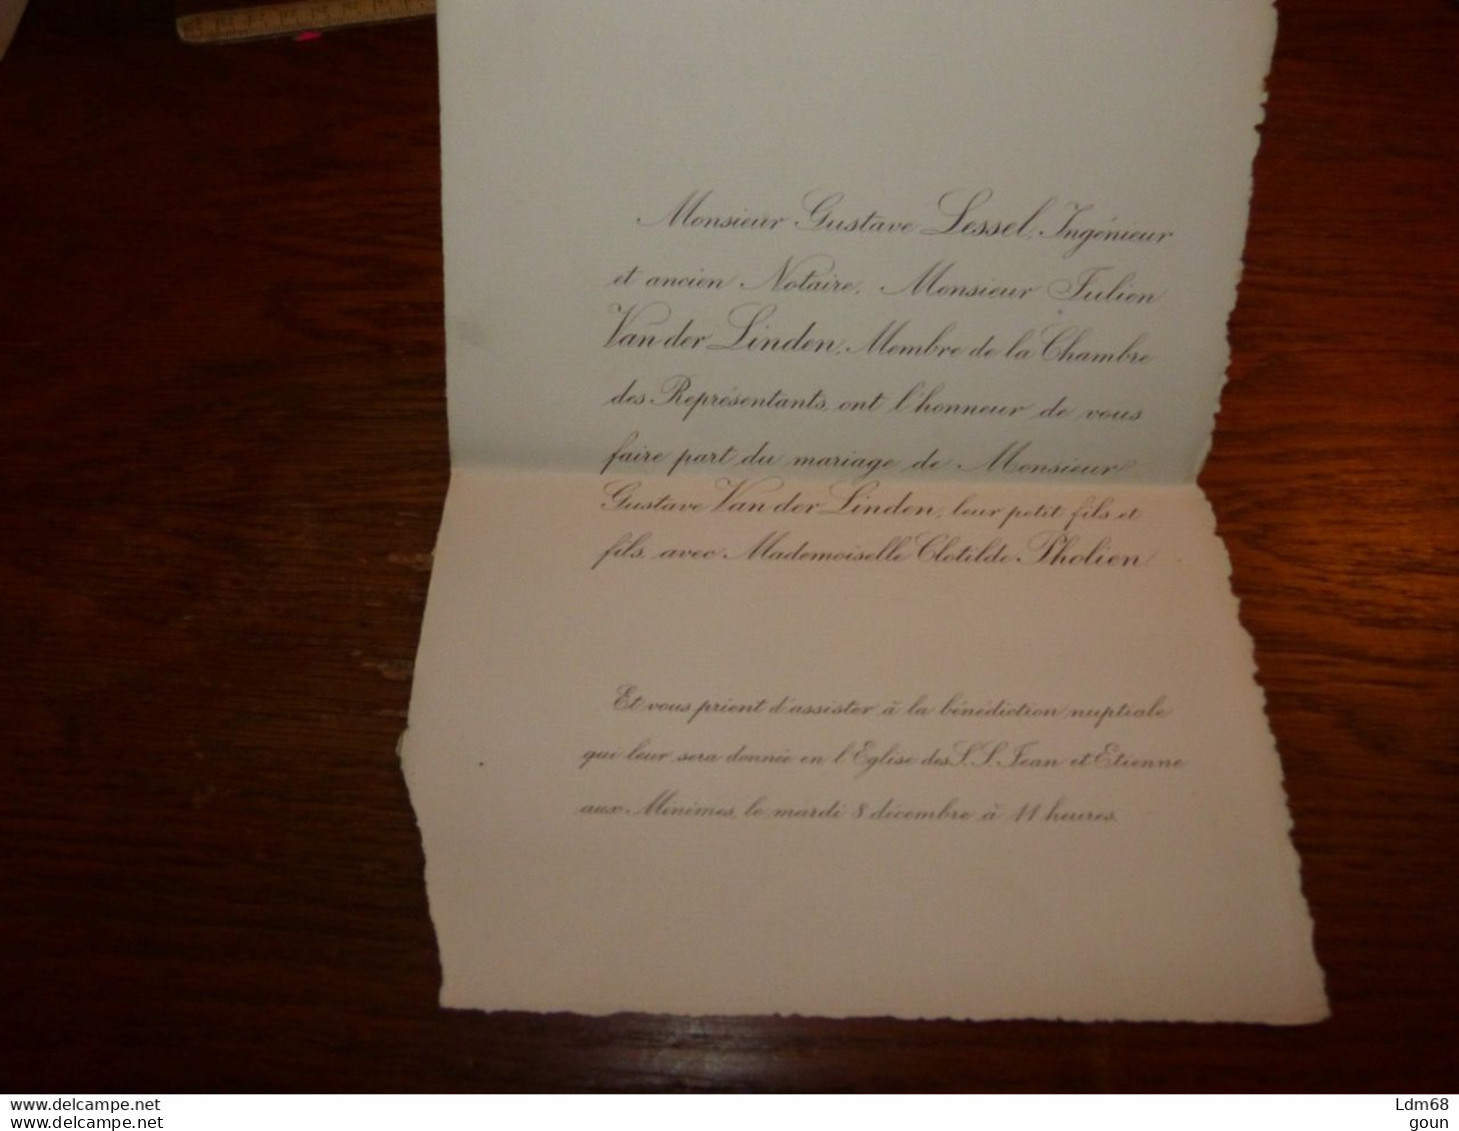 Monsieur Gustave Lessel, Ingénieur
et ancien Notaire, Monsieur Julien
Van der Linden, Membre de la Chambre
des Représentants, ont l'honneur de vous
faire part du mariage de Monsieur
Gustave Van der Linden, leur petit fils et
fils, avec Mademoiselle Clotilde Pholien.
Et vous prient d'assister à la bénédiction nuptiale
qui leur sera donnée en l'Eglise des S.S. Jean et Etienne
aux Minimes, le mardi 8 décembre à 11 heures.
www.delcampe.net
www.delcampe.net
Ldm68
goun